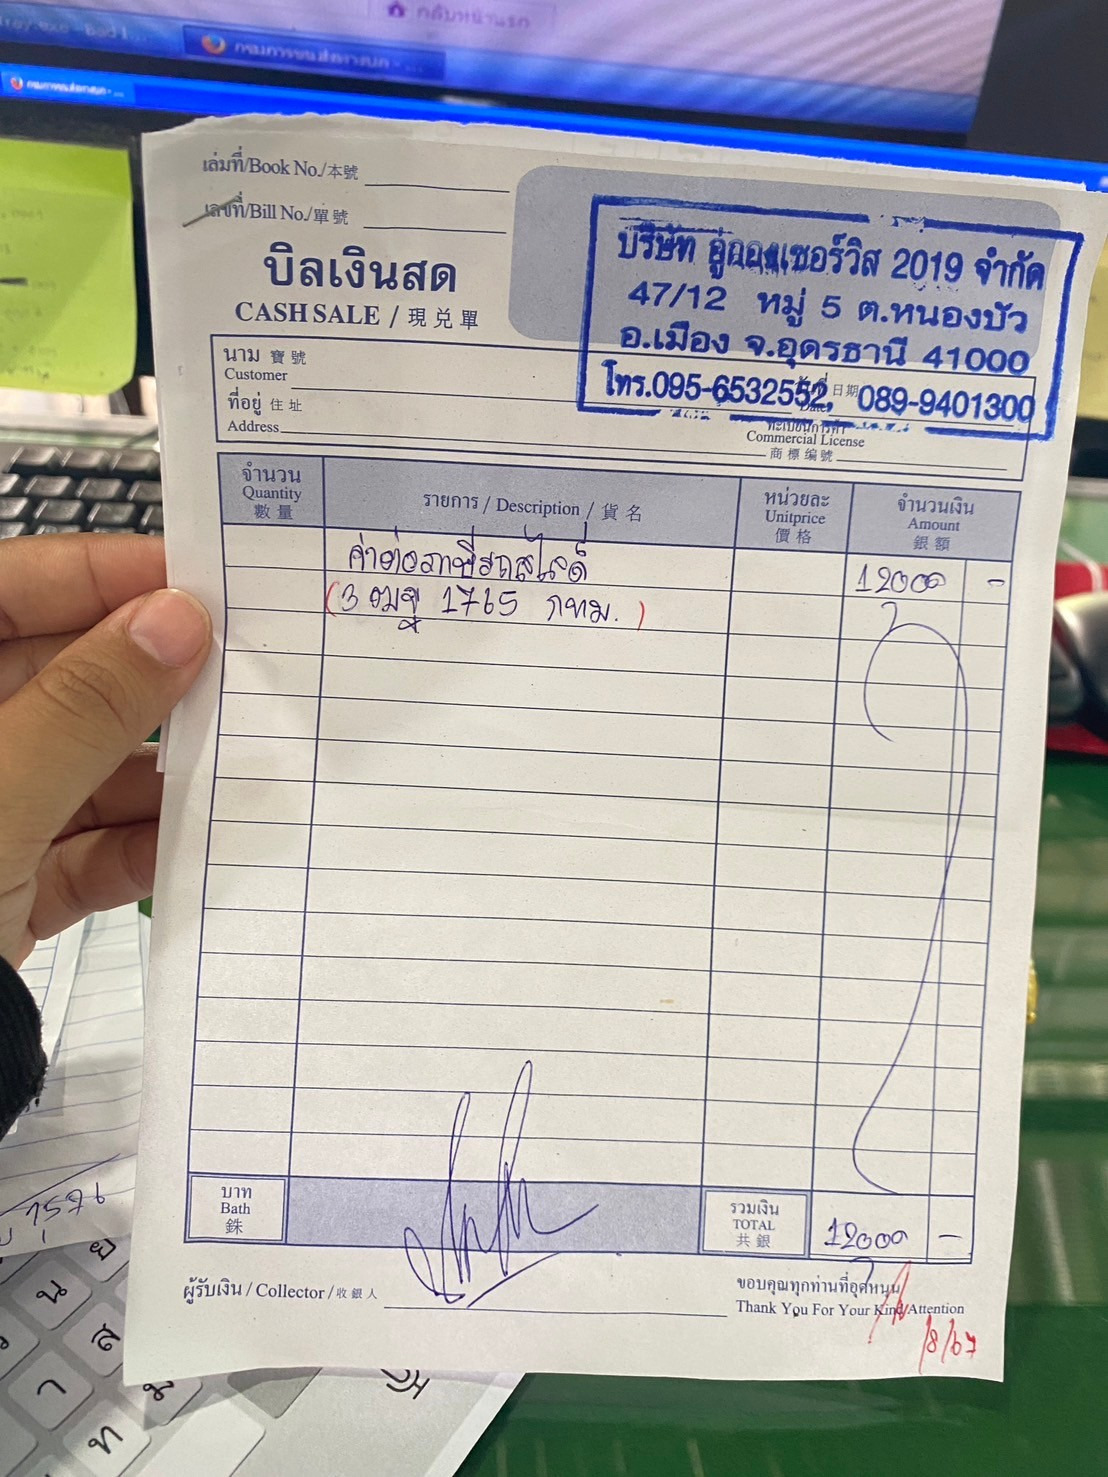 กลับหน้าแรก
กรมการขนส่งทางบก - ...
กรมการขนส่งทางบก - ...
เล่มที่/Book No./本號
เลขที่/Bill No./單號
บิลเงินสด
CASH SALE / 現兌單
บริษัท อู่ เซอร์วิส 2019 จำกัด
47/12 หมู่ 5 ต.หนองบัว
อ.เมือง จ.อุดรธานี 41000
โทร.095-6532552, 089-9401300
นาม 寶號
Customer
日期
Date
ที่อยู่ 住址
Address
ทะเบียนการค้า
Commercial License
商標编號
จำนวน
Quantity
數量
รายการ / Description / 貨名
หน่วยละ
Unitprice
價格
จำนวนเงิน
Amount
銀額
ค่าต่อภาษีรถสไลด์ 12000 -
(3 ฒฐ 1765 กทม.)
บาท
Bath
銖
รวมเงิน
TOTAL
共銀
12000 -
ผู้รับเงิน / Collector / 收銀人
ขอบคุณทุกท่านที่อุดหนุน
Thank You For Your Kind Attention
/8/67
1576